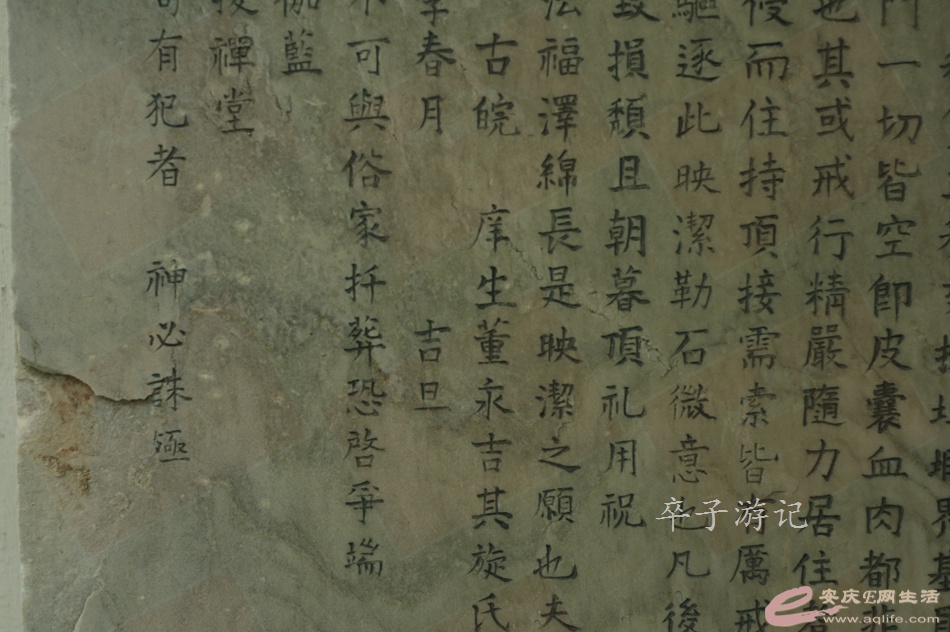 界
門一切皆空卽皮囊血肉都
也其或戒行精嚴隨力居住
而住持頂接需索皆有厲戒
驅逐此映潔勒石微意也凡後
致損頹且朝暮頂礼用祝
法福澤綿長是映潔之願也夫
古皖 庠生董永吉其旋氏
春月 吉旦
不可與俗家扦葬恐啓爭端
伽藍
禪堂
有犯者 神必誅殛
卒子游记
安庆E网生活
www.aqlife.com